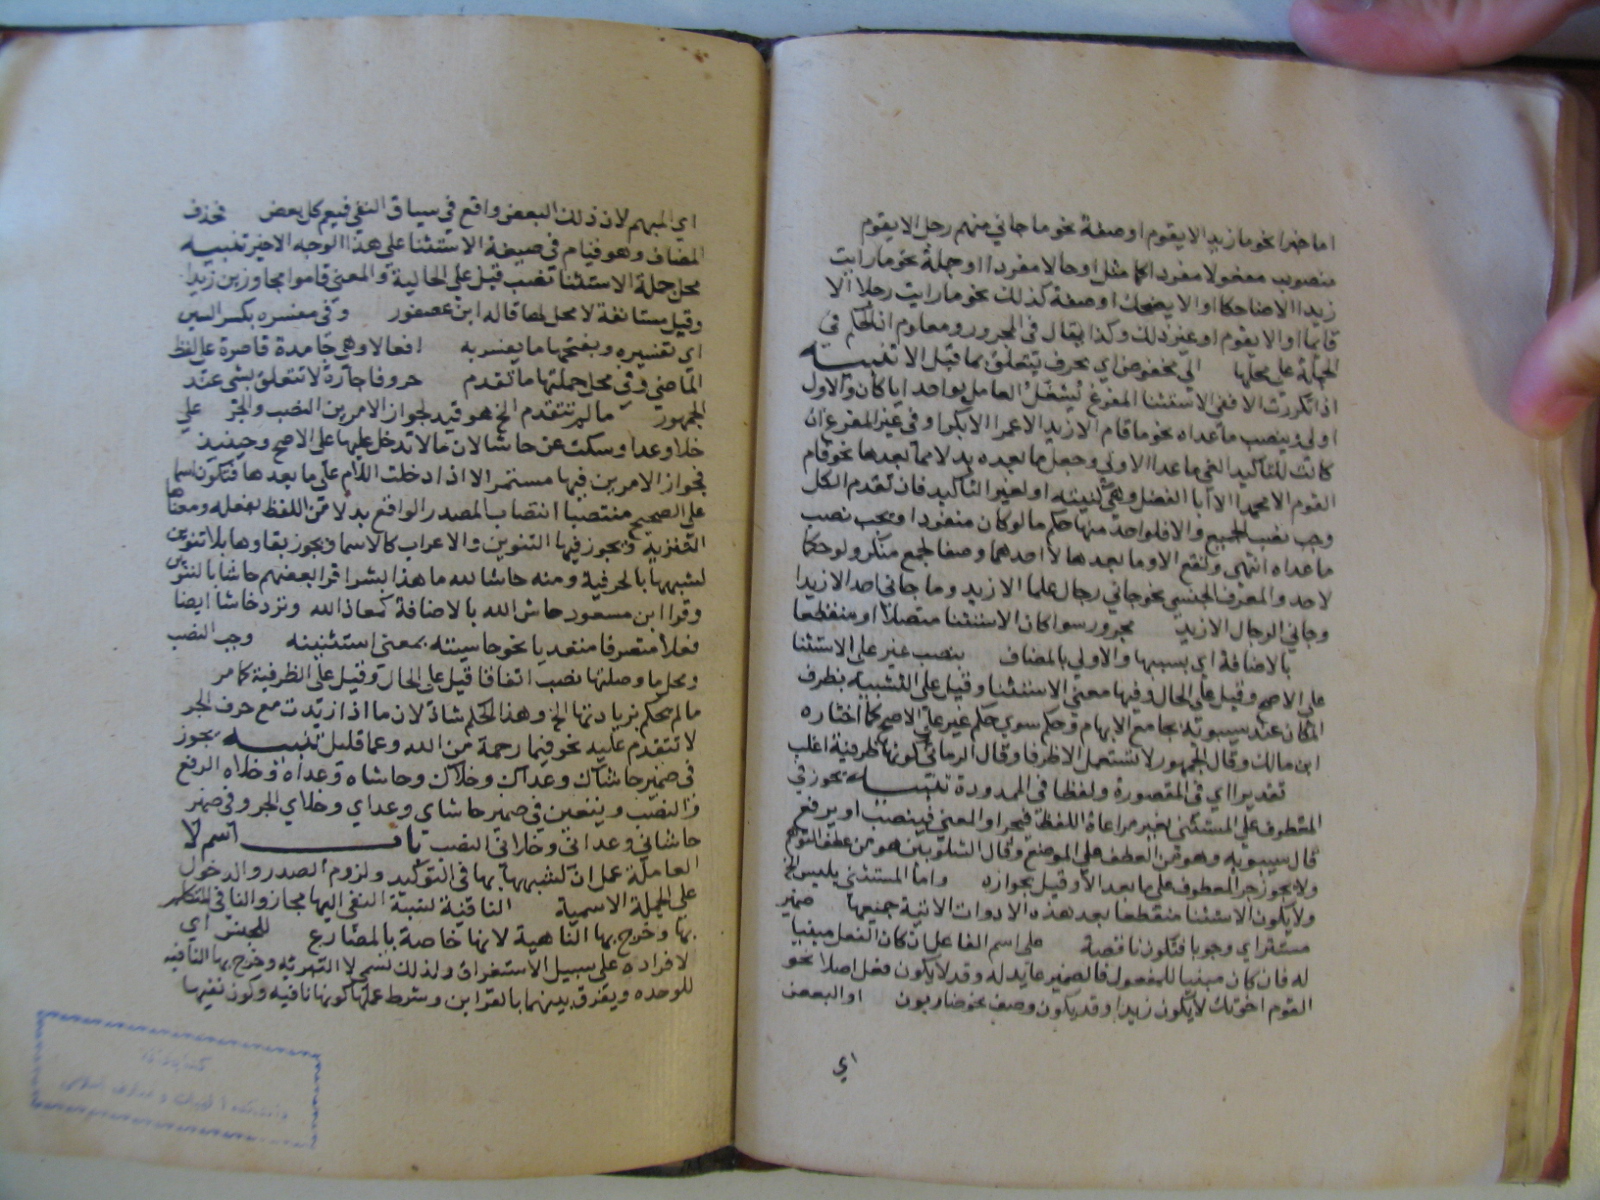 اما خبرا نحو ما زيد الا يقوم او صفة نحو ما جاني منهم رجل الا يقوم
منصوب معمولا مفردا كما مثل او حالا مفردا او جملة نحو ما رايت
زيدا الا ضاحكا او الا يضحك او صفة كذلك نحو ما رايت رجلا الا
قايما او الا يقوم او غير ذلك وكذا يقال في المجرور ومعلوم ان الحكم في
الجملة على محلها الى مخفوض اي بحرف يتعلق بما قبل الا تنبيه
اذا تكررت الا ففي الاستثنا المفرغ يشغل العامل بواحد ايا كان والاول
اولى وينصب ما عداه نحو ما قام الا زيد الا عمرا الا بكرا وفي غير المفرغ ان
كانت للتاكيد الغي ما عدا الاولى وجعل ما بعده بدلا مما بعدها نحو قام
القوم الا محمدا الا ابا الفضل وهي كنيته او لغير التاكيد فان تقدم الكل
وجب نصب الجميع والا فلواحد منها حكم ما لو كان منفردا ويجب نصب
ما عداه انتهى وتقع الا وما بعدها لاحدهما وصفا لجمع منكر ولو حكما
لاحد والمعرف الجنسي نحو جاني رجال علما الا زيد وما جاني احد الا زيدا
وجاني الرجال الا زيد مجرور سوا كان الاستثنا متصلا او منقطعا
بالاضافة اي بسببها والاولى بالمضاف بنصب غير على الاستثنا
على الاصح وقيل على الحال وفيها معنى الاستثنا وقيل على التشبيه بظرف
المكان عند سيبويه بجامع الابهام وحكم سوى حكم غير على الاصح كما اختاره
ابن مالك وقال الجمهور لا تستعمل الا ظرفا وقال الرماني كونها ظرفية اغلب
تقديرا اي في المقصورة ولفظا في الممدودة تنبيه يجوز في
المعطوف على المستثنى بغير مراعاة اللفظ فيجر او المعنى فينصب او يرفع
قال سيبويه وهو من العطف على الموضع وقال الشلوبين هو من عطف التوهم
ولا يجوز جر المعطوف على ما بعد الا وقيل بجوازه واما المستثنى بليس الخ
ولا يكون الاستثنا منقطعا بعد هذه الادوات الاتية جميعها ضمير
مستتر اي وجوبا فتكون ناقصة على اسم الفاعل ان كان الفعل مبنيا
له فان كان مبنيا للمفعول فالضمير عايد له وقد لا يكون فعل اصلا نحو
القوم اخوتك لا يكون زيدا وقد يكون وصف نحو ضاربون او البعض
اي
اي المبهم لان ذلك البعض واقع في سياق النفي فيعم كل بعض فحذف
المضاف وهو فيام في صيغة الاستثنا على هذا الوجه الاخير تنبيه
محل جملة الاستثنا نصب قيل على الحالية والمعنى قاموا مجاوزين زيدا
وقيل مستانفة لا محل لها قاله ابن عصفور وفي مفسره بكسر السين
اي تفسيره وبفتحها ما يفسر به افعالا وهي جامدة قاصرة على لفظ
الماضي وفي محل جملتها ما تقدم حروفا جارة لا تتعلق بشي عند
الجمهور ما لم تتقدم الخ هو قيد لجواز الامرين النصب والجر على
خلا وعدا وسكت عن حاشا لان ما لا تدخل عليها على الاصح وحينيذ
فجواز الامرين فيها مستمر الا اذا دخلت اللام على ما بعدها فتكون اسما
على الصحيح منتصبا انتصاب المصدر الواقع بدلا من اللفظ بفعله ومعناها
التنزيه ويجوز فيها التنوين والاعراب كالاسما ويجوز بقاوها بلا تنوين
لشبهها بالحرفية ومنه حاشا لله ما هذا بشرا قرا بعضهم حاشا بالتنوين
وقرا ابن مسعود حاش الله بالاضافة كمعاذ الله وترد حاشا ايضا
فعلا متصرفا متعديا نحو حاسيته بمعنى استثنيته وجب النصب
ومحل ما وصلتها نصب اتفاقا قيل على الحال وقيل على الظرفية كما مر
ما لم يحكم بزيادتها الخ وهذا الحكم شاذ لان ما اذا زيدت مع حرف الجر
لا تتقدم عليه نحو فبما رحمة من الله وعما قليل تنبيه يجوز
في ضمير حاشاك وعداك وخلاك وحاشاه وعداه وخلاه الرفع
والنصب ويتعين في ضمير حاشاي وعداي وخلاي الجر وفي ضمير
حاشاني وعداني وخلاني النصب باب اسم لا
العاملة عمل ان لشبهها بها في التوكيد ولزوم الصدر والدخول
على الجملة الاسمية النافية لنسبة النفي اليها مجاز والنافي المتكلم
بها وخرج بها الناهية لانها خاصة بالمضارع للجنس اي
لافراده على سبيل الاستغراق ولذلك تسمى لا التبرئه وخرج بها النافيه
للوحده ويفرق بينهما بالقراين وشرط عملها كونها نافيه وكون نفيها